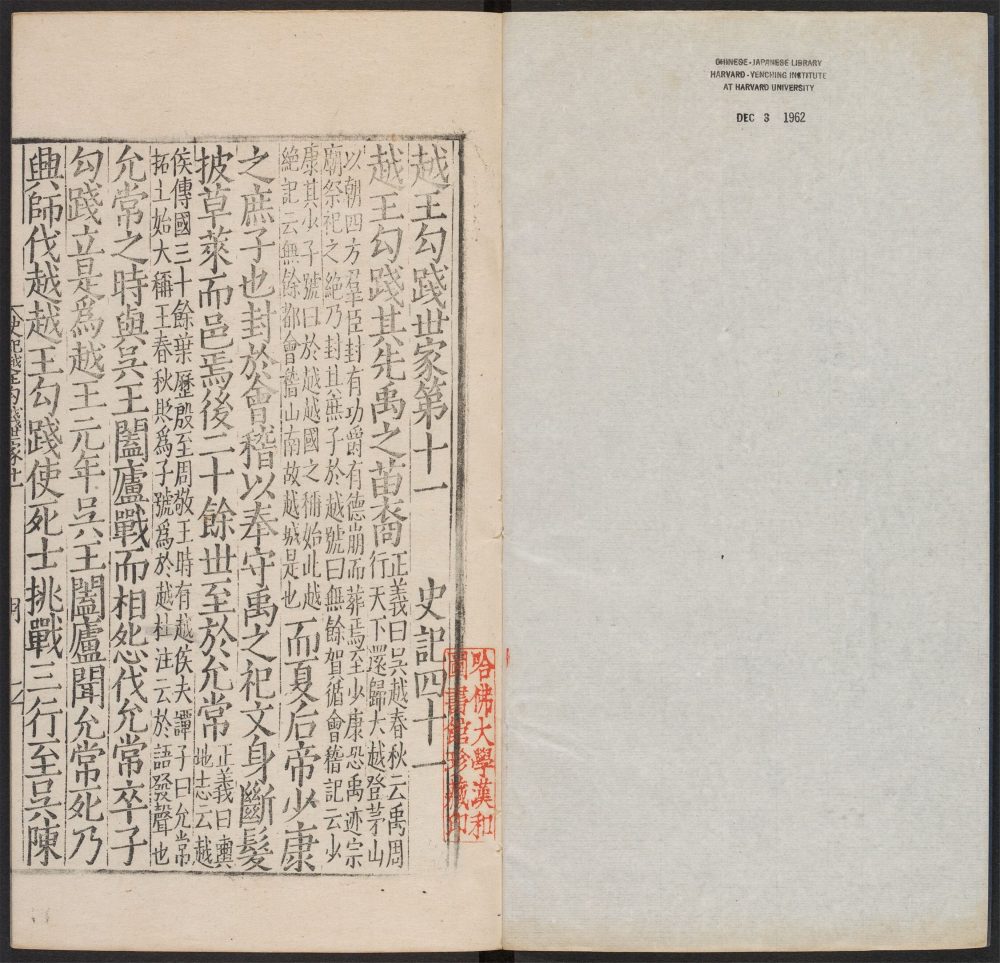 CHINESE-JAPANESE LIBRARY
HARVARD-YENCHING INSTITUTE
AT HARVARD UNIVERSITY
DEC 3 1962
哈佛大學漢和
圖書館珍藏印
越王勾踐世家第十一 史記四十一
越王勾踐其先禹之苗裔
正義曰吳越春秋云禹周
行天下還歸大越登茅山
以朝四方羣臣封有功爵有德崩而葬焉至少康恐禹迹宗
廟祭祀之絶乃封其庶子於越號曰無餘賀循會稽記云少
康其少子號曰於越越國之稱始此越
絶記云無餘都會稽山南故越城是也
而夏后帝少康
之庶子也封於會稽以奉守禹之祀文身斷髮
披草萊而邑焉後二十餘世至於允常
正義曰輿
地志云越
侯傳國三十餘葉歷殷至周敬王時有越侯夫譚子曰允常
拓土始大稱王春秋貶為子號為於越杜注云於語發聲也
允常之時與吳王闔廬戰而相怨伐允常卒子
勾踐立是爲越王元年吳王闔廬聞允常死乃
興師伐越越王勾踐使死士挑戰三行至吳陳
史記越王勾踐世家十一